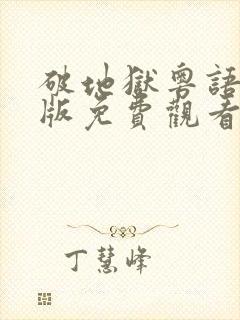 破地獄粵語
版免費觀看
丁慧峰